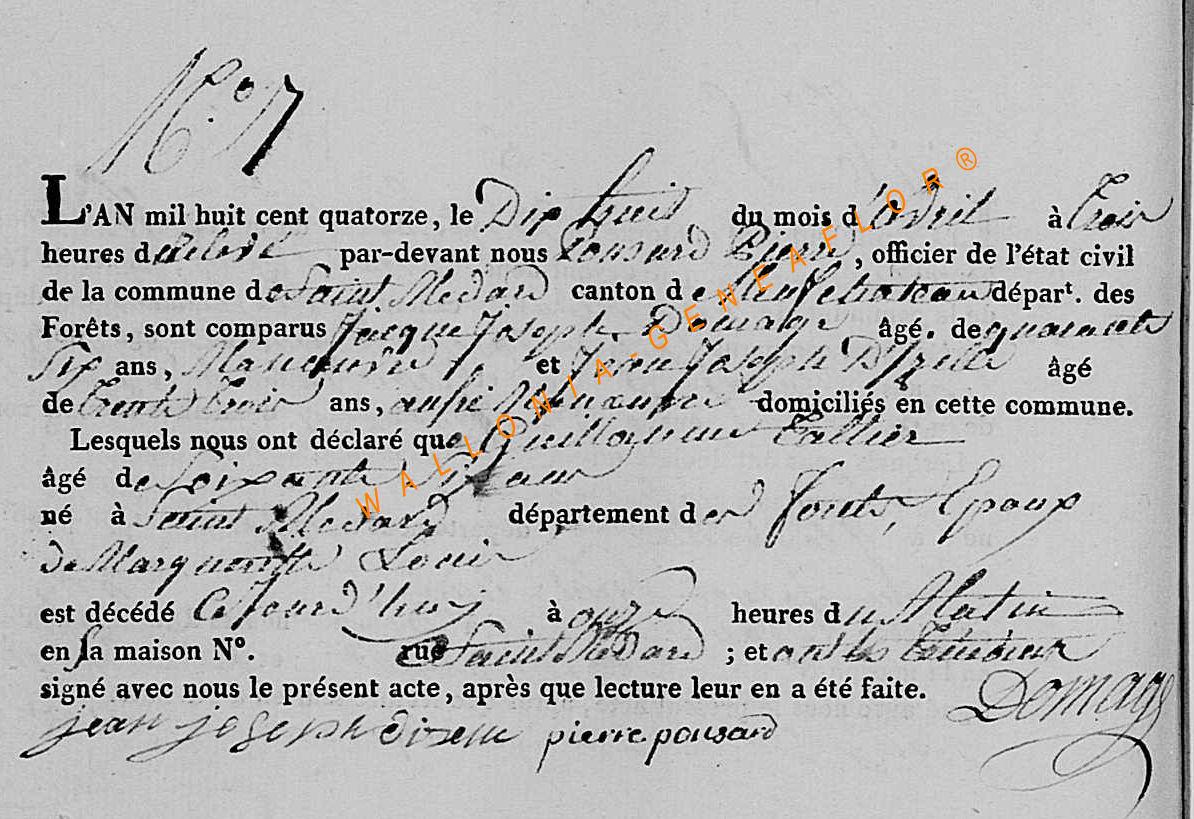 N.° 17
L'AN mil huit cent quatorze, le Dix huit du mois d'avril à trois
heures de par-devant nous Pousard Pierre, officier de l'état civil
de la commune de Saint Medard canton de Neufchateau départ. des
Forêts, sont comparus Jacque Joseph Domage âgé. de quarante
Six ans, Manoeuvre, et Jean Joseph Dizene âgé
de trente trois ans, aussi Manoeuvre domiciliés en cette commune.
Lesquels nous ont déclaré que Guillaume Tallier
âgé de Soixante Six ans
né à Saint Medard département des forets, Epoux
de Marguerite Louis
est décédé Ce jourd'huy à onze heures du Matin
en sa maison N°. rue Saint Medard ; et ont les témoins
signé avec nous le présent acte, après que lecture leur en a été faite.
Domage
jean joseph dizene pierre pousard
WALLONIA-GENEAFLOR®